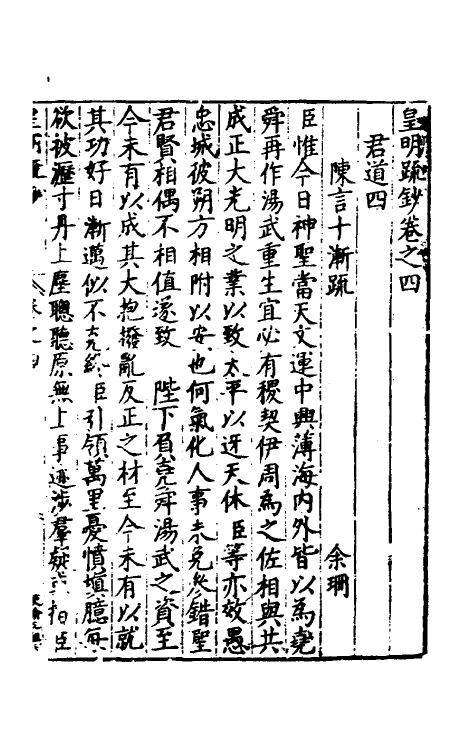 皇明疏鈔卷之四
君道四
陳言十漸疏 余珊
臣惟今日神聖當天文運中興薄海内外皆以為堯
舜再作湯武重生宜必有稷契伊周為之佐相與共
成正大光明之業以致太平以迓天休臣等亦效愚
忠城彼朔方相附以安也何氣化人事未免參錯聖
君賢相偶不相值遂致 陛下負堯舜湯武之資至
今未有以成其大抱撥亂反正之材至今未有以就
其功好日漸邁似不克終臣引領萬里憂憤填臆每
欲披瀝寸丹上塵聰聽原無上事迹涉羣